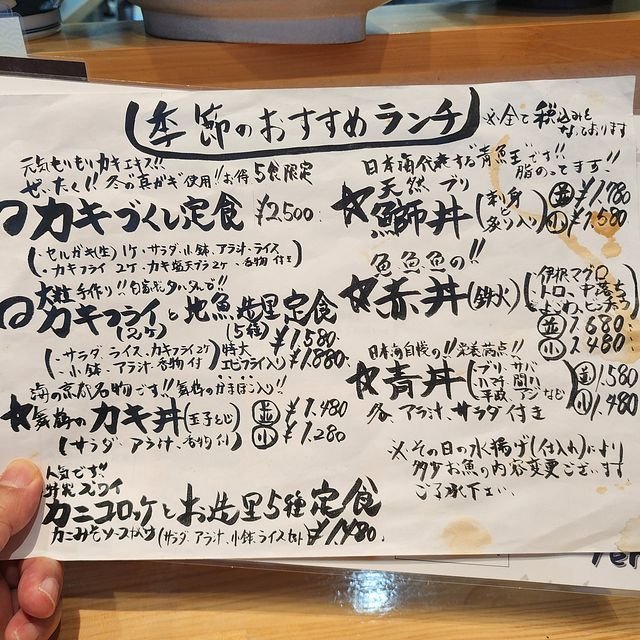 季節のおすすめランチ
※全て税込みとなっております
元気もりもりカキエキス!!
ぜいたく!!冬の真ガキ使用!!お得 5食限定
カキづくし定食 ¥2,500
・セルガキ(生)1ケ・サラダ・小鉢・アラ汁・ライス
・カキフライ2ケ・カキ塩天プラ2ケ・香物付き
大粒手作り!!自家製タルタルで!!
カキフライ(2ケ)と地魚造里(5種)定食 ¥1,580
(・サラダ、ライス、カキフライ2ケ ・小鉢・アラ汁・香物付)
特大エビフライ入り ¥1,880
海の京都名物です!!舞鶴のかまぼこ入り!!
★舞鶴のカキ丼(玉子とじ) 並 ¥1,480
小 ¥1,280
(サラダ、アラ汁、香物付)
人気です!!
カニコロッケとお造里5種定食
カニみそソースかけ(サラダ、アラ汁、小鉢、ライスセット) ¥1,480
日本海代表する"青魚王"です!!
脂のってます!!
天然ブリ
★鰤丼(刺身と炙り入り) 並 ¥1,780
小 ¥1,580
魚魚魚の!!
★赤丼(鉄火)
伊根マグロ
トロ、中落ち
並 1,680
小 1,480
日本海自慢の!!
★青丼
ブリ、サバ
平政、アジなど
並 1,580
小 1,480
各、アラ汁、サラダ付き
※その日の水揚げ(仕入れ)により
多少お魚の内容変更ございます
ご了承下さい。